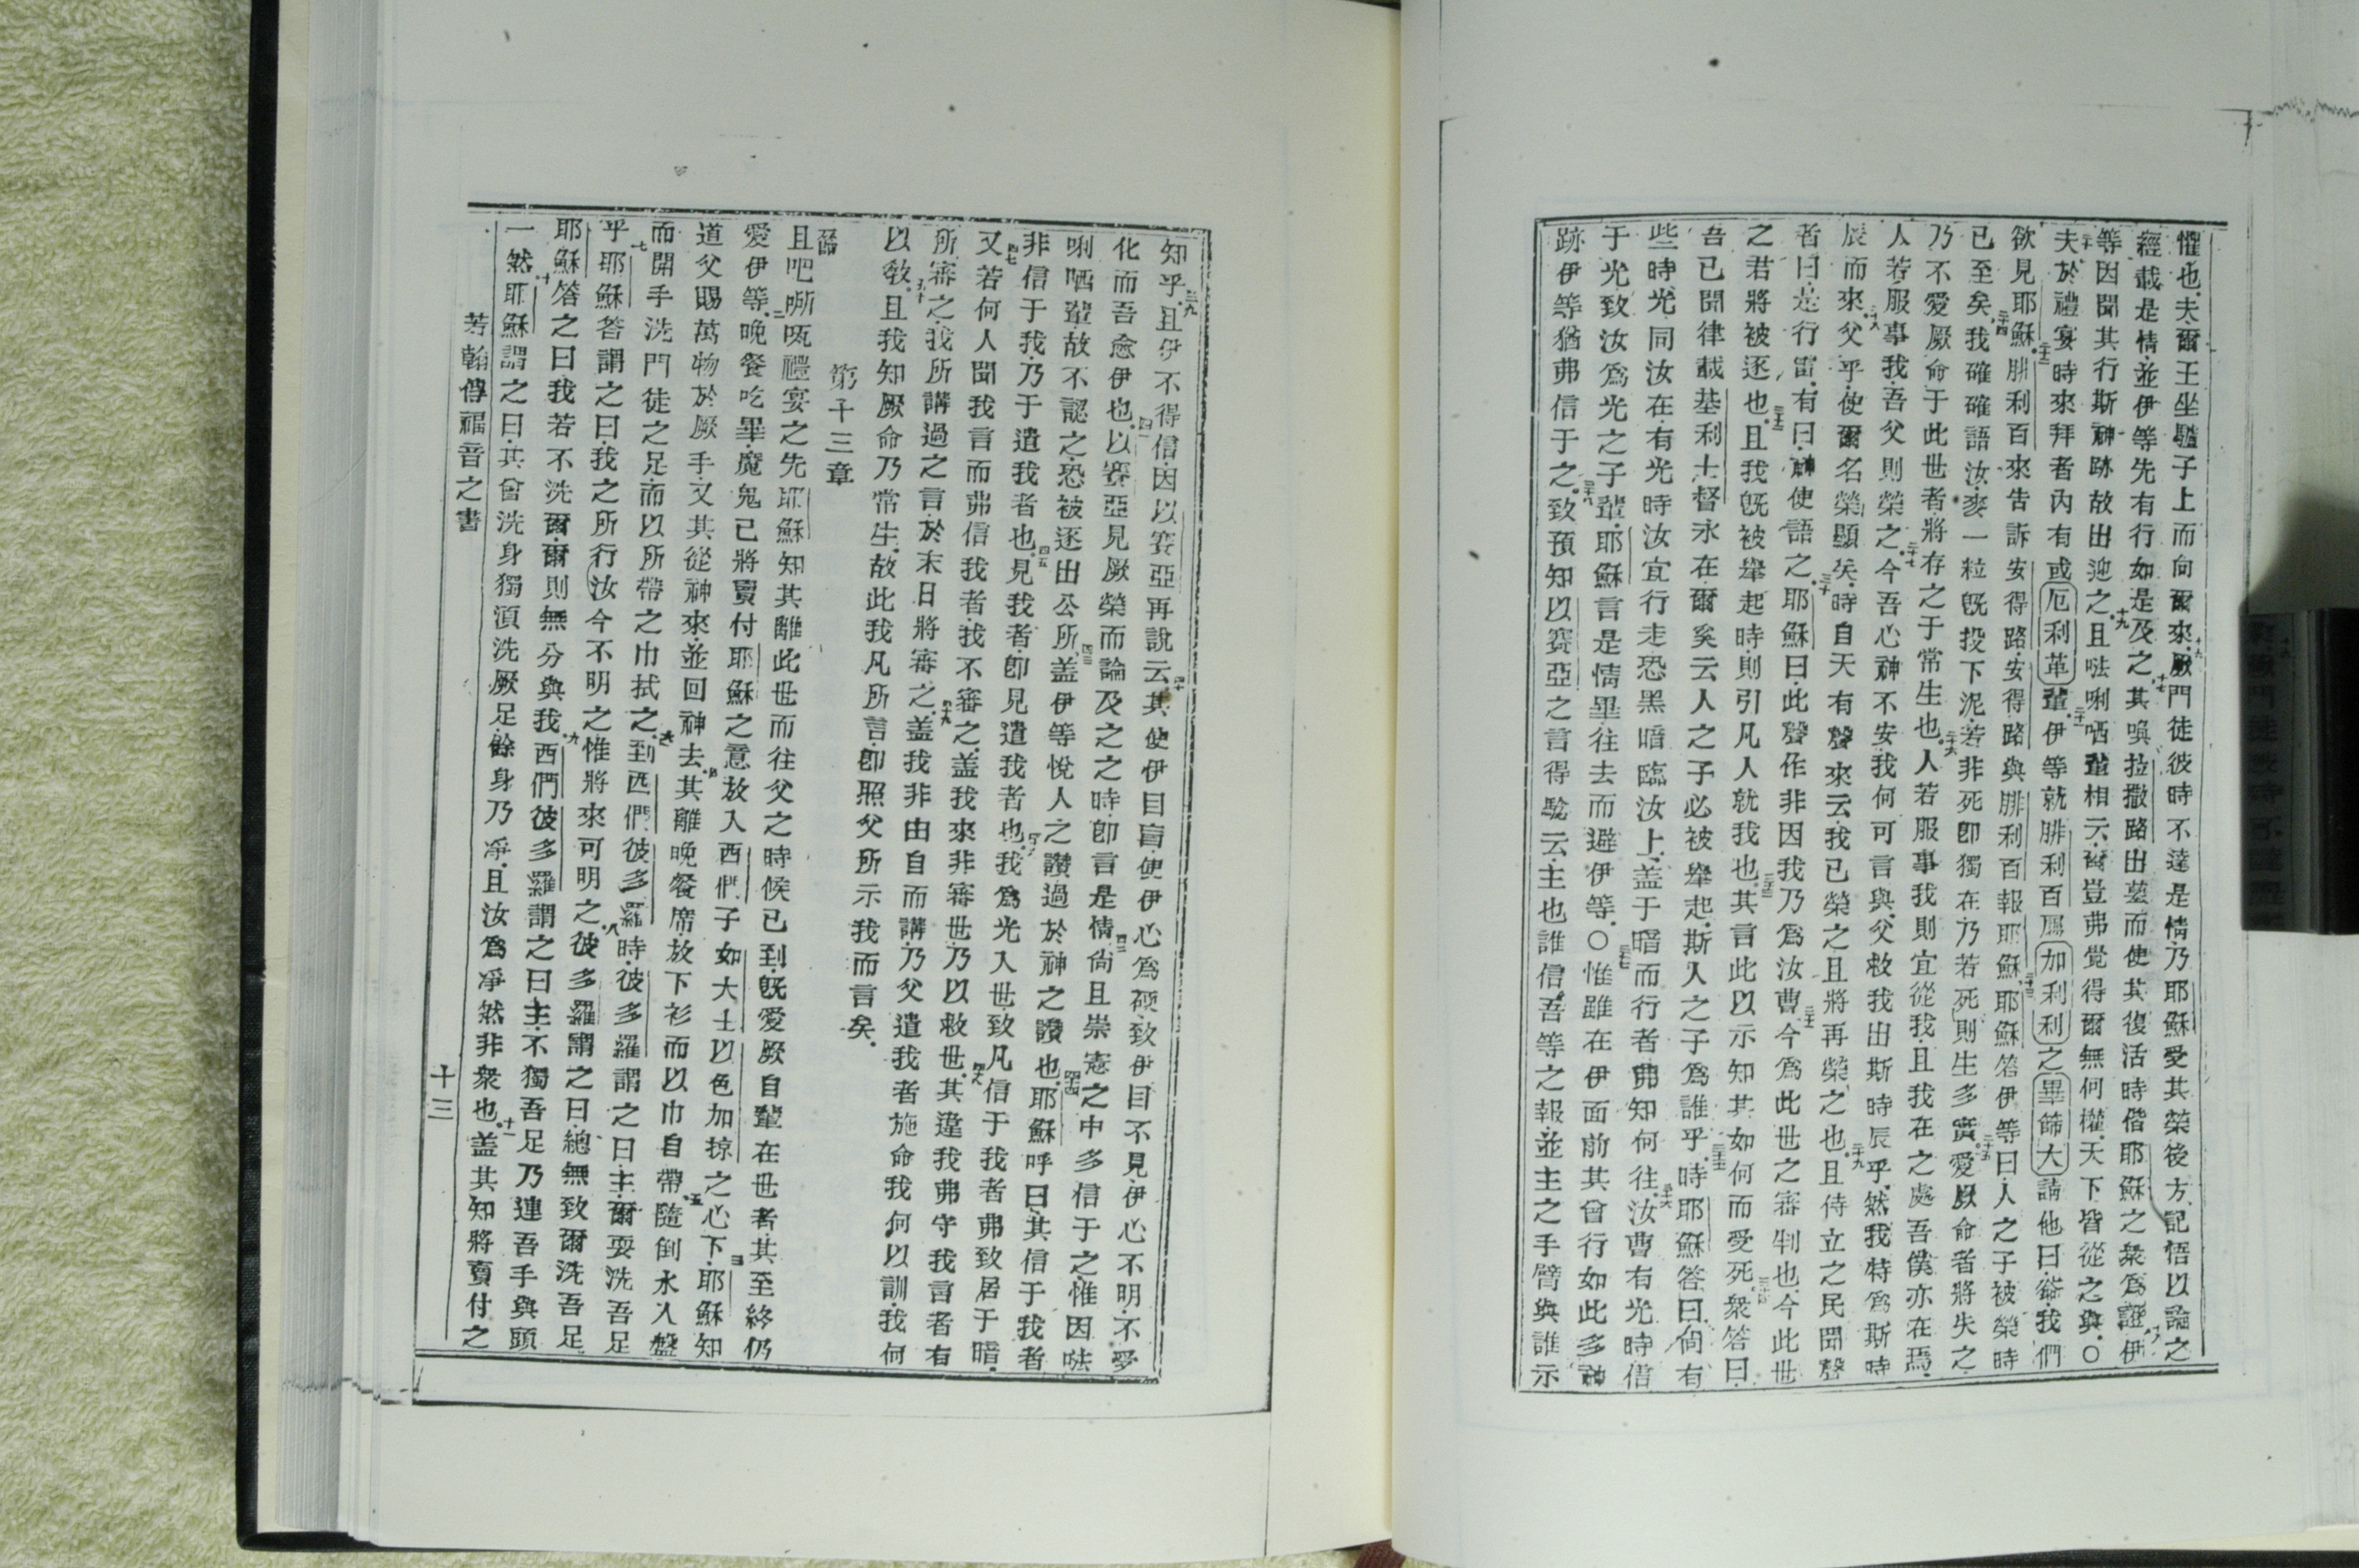 懼也夫爾王坐驢子上而向爾來厥門徒彼時不達是情乃耶穌受其榮後方記悟以論之
經載是情並伊等先有行如是及之其喚拉撒路出墓而使其復活時偕耶穌之衆為證伊
等因聞其行斯神跡故出迎之且㕹唎哂輩相云爾豈弗覺得爾無何權天下皆從之輿○
夫於禮宴時來拜者內有或厄利革輩伊等就腓利百屬加利利之畢篩大請他曰爺我們
欲見耶穌腓利百來告訴安得路安得路與腓利百報耶穌耶穌答伊等曰人之子被榮時
已至矣我確確語汝麥一粒旣投下泥若非死卽獨在乃若死則生多實愛厥命者將失之
乃不愛厥命于此世者將存之于常生也人若服事我則宜從我且我在之處吾僕亦在焉
人若服事我吾父則榮之今吾心神不安我何可言與父救我出斯時辰乎然我特為斯時
辰而來父乎使爾名榮顯矣時自天有聲來云我已榮之且將再榮之也且侍立之民聞聲
者曰是行雷有曰神使語之耶穌曰此聲作非因我乃為汝曹今為此世之審判也今此世
之君將被逐也且我旣被舉起時則引凡人就我也其言此以示知其如何而受死衆答曰
吾已聞律載基利士督永在爾奚云人之子必被舉起斯人之子為誰乎時耶穌答曰尚有
些時光同汝在有光時汝宜行走恐黑暗臨汝上蓋于暗而行者弗知何往汝曹有光時信
于光致汝為光之子輩耶穌言是情畢往去而避伊等○惟雖在伊面前其曾行如此多神
跡伊等猶弗信于之致預知以賽亞之言得騐云主也誰信吾等之報並主之手臂與誰示
知乎且伊不得信因以賽亞再說云其使伊目盲使伊心為硬致伊目不見伊心不明不受
化而吾愈伊也以賽亞見厥榮而論及之之時卽言是情尚且崇憲之中多信于之惟因㕹
唎哂輩故不認之恐被逐出公所蓋伊等悅人之讚過於神之讚也耶穌呼曰其信于我者
非信于我乃于遣我者也見我者卽見遣我者也我為光入世致凡信于我者弗致居于暗
又若何人聞我言而弗信我者我不審之蓋我來非審世乃以救世其違我弗守我言者有
所審之我所講過之言於末日將審之蓋我非由自而講乃父遣我者施命我何以訓我何
以敎且我知厥命乃常生故此我凡所言卽照父所示我而言矣
第十三章
且吧嘶㕭禮宴之先耶穌知其離此世而往父之時候已到旣愛厥自輩在世者其至終仍
愛伊等晚餐吃畢魔鬼已將賣付耶穌之意放入西們子如大士以色加掠之心下耶穌知
道父賜萬物於厥手又其從神來並回神去其離晚餐席放下衫而以巾自帶隨倒水入盤
而開手洗門徒之足而以所帶之巾拭之到西們彼多羅時彼多羅謂之曰主爾耍洗吾足
乎耶穌答謂之曰我之所行汝今不明之惟將來可明之彼多羅謂之曰總無致爾洗吾足
耶穌答之曰我若不洗爾爾則無分與我西們彼多羅謂之曰主不獨吾足乃連吾手與頭
一然耶穌謂之曰其曾洗身獨須洗厥足餘身乃凈且汝為凈然非衆也蓋其知將賣付之
若翰傳福音之書
十三